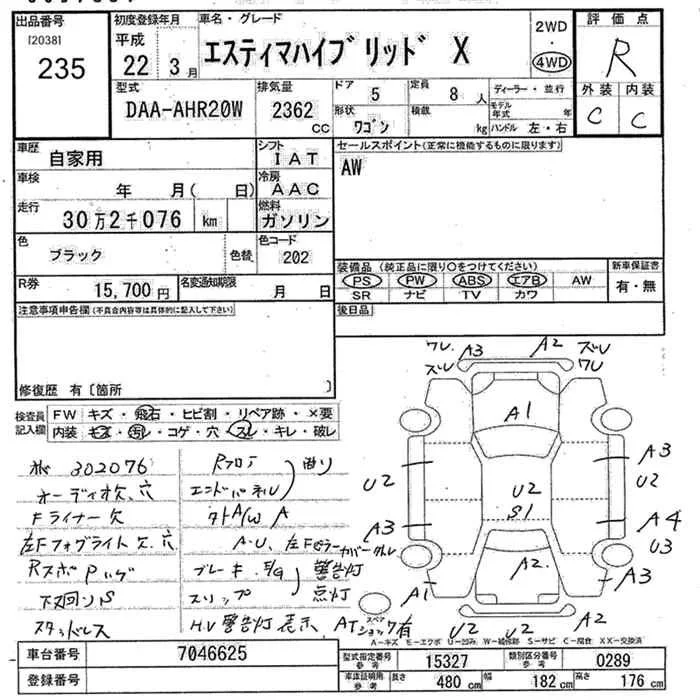 出品番号
[2038]
235
初度登録年月
平成
22 3月
車名・グレード
エスティマハイブリッド X
2WD
・
4WD
評価点
R
外装 内装
C C
型式
DAA-AHR20W
排気量
2362 CC
ドア 5
定員 8人
形状 ワゴン
積載 kg
ディーラー・並行
モデル年式 年
ハンドル 左・右
車歴 自家用
シフト IAT
車検 年 月( 日)
冷房 AAC
走行 30万2千076 km
燃料 ガソリン
色 ブラック
色替
色コード 202
R券 15,700円
名変通知期限 月 日
セールスポイント(正常に機能するものに限ります)
AW
装備品(純正品に限り○をつけてください)
PS PW ABS エアB AW
SR ナビ TV カワ
新車保証書
有・無
後日品
注意事項申告欄(不具合内容等は具体的に記入して下さい)
修復歴 有〔箇所 〕
検査員記入欄
FW キズ・飛石・ヒビ割・リペア跡・×要
内装 キズ・汚レ・コゲ・穴・スレ・キレ・破レ
302076
オーディオ欠、穴
Fライナー欠
左Fフォグライト欠、穴
下回りS
スタッドレス
Rフロア
エンドパネル
曲り
外A/W A
ブレーキ、E/G
スリップ
警告灯
点灯
H.V警告灯 表示
ATショック有
ワレ A3 A2 ズレ
ズレ ワレ
A1
A3
U2 U2
U2
S1
A3 A4
U3
A2
A1 A3
スペア
U2 U2 A2
A-キズ E-エクボ U-凹み W-補修跡 S-サビ C-腐食 XX-交換済
車台番号 7046625
登録番号
型式指定番号参考 15327
類別区分番号参考 0289
車庫証明用参考 長さ 480 cm 幅 182 cm 高さ 176 cm